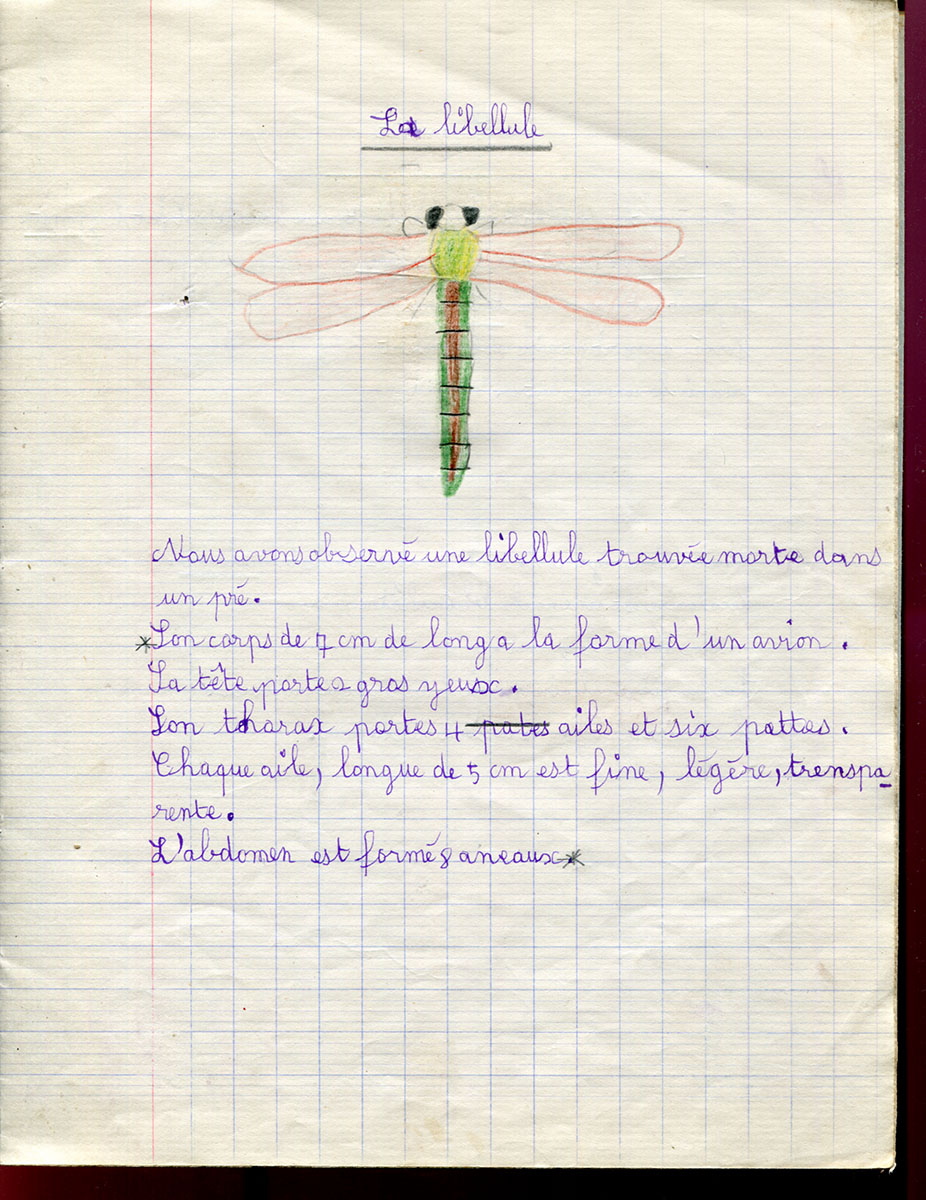 La libellule
Nous avons observé une libellule trouvée morte dans
un pré.
*Son corps de 7 cm de long a la forme d'un avion.
Sa tête porte 2 gros yeux.
Son thorax portes 4 ~~pates~~ ailes et six pattes.
Chaque aile, longue de 5 cm est fine, légére, trenspa_
rente.
L'abdomen est formé 8 aneaux*